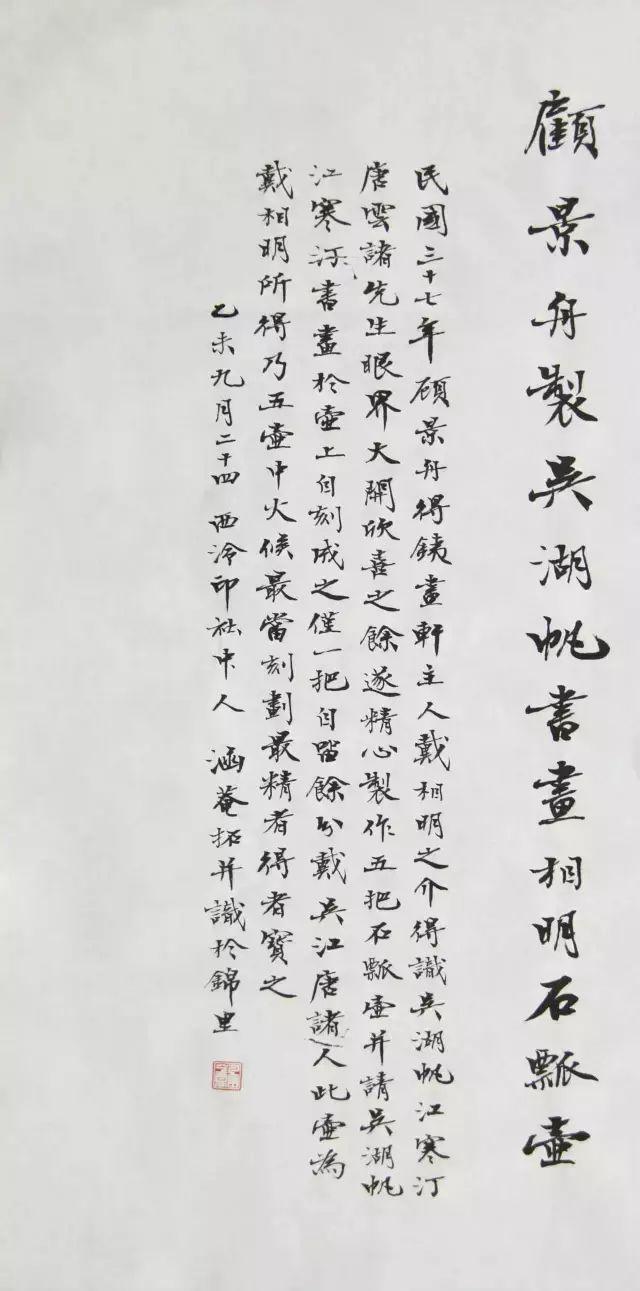 顧景舟製吳湖帆書畫相明石瓢壷
民國三十七年顾景舟得銕畫軒主人戴相明之介得識吳湖帆江寒汀
唐雲諸先生眼界大開欣喜之餘遂精心製作五把石瓢壷并請吳湖帆
江寒汀書畫於壷上自刻成之僅一把自留餘分戴吳江唐諸人此壷為
戴相明所得乃五壷中火候最當刻劃最精者得者寳之
乙未九月二十四 西泠印社中人 涵菴拓并識於錦里